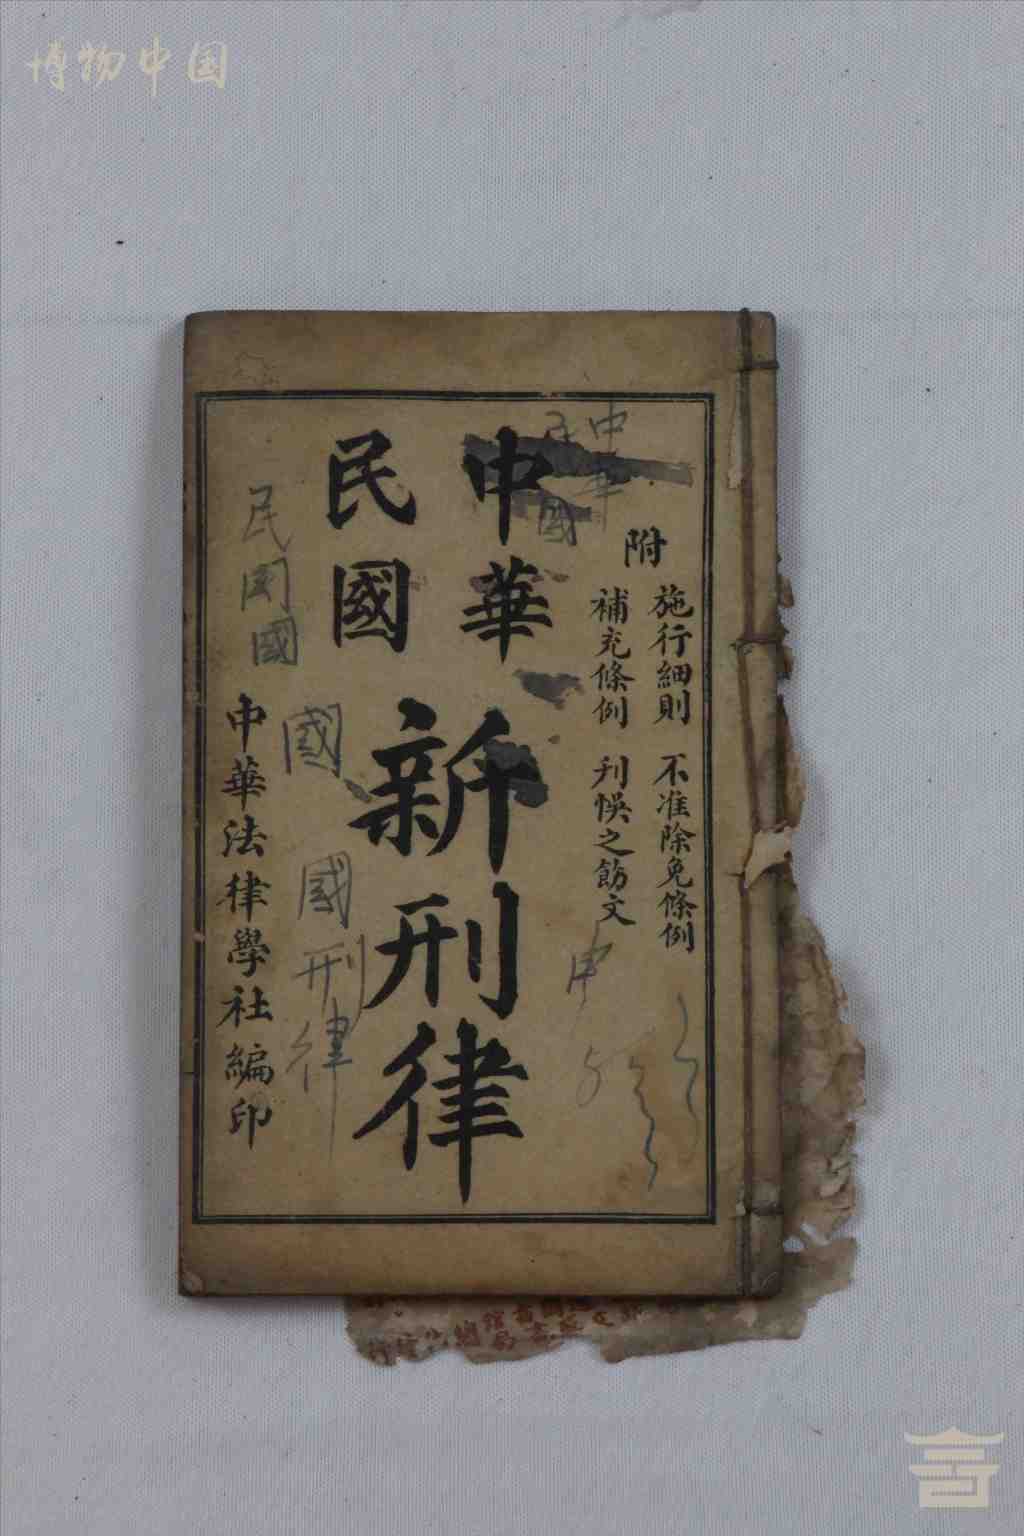 博物中国
附
施行細則 不准除免條例
補充條例 刋悮之飭文
中華
民國
新刑律
中華法律學社編印
中華
民國
民国
國
國
國刑律